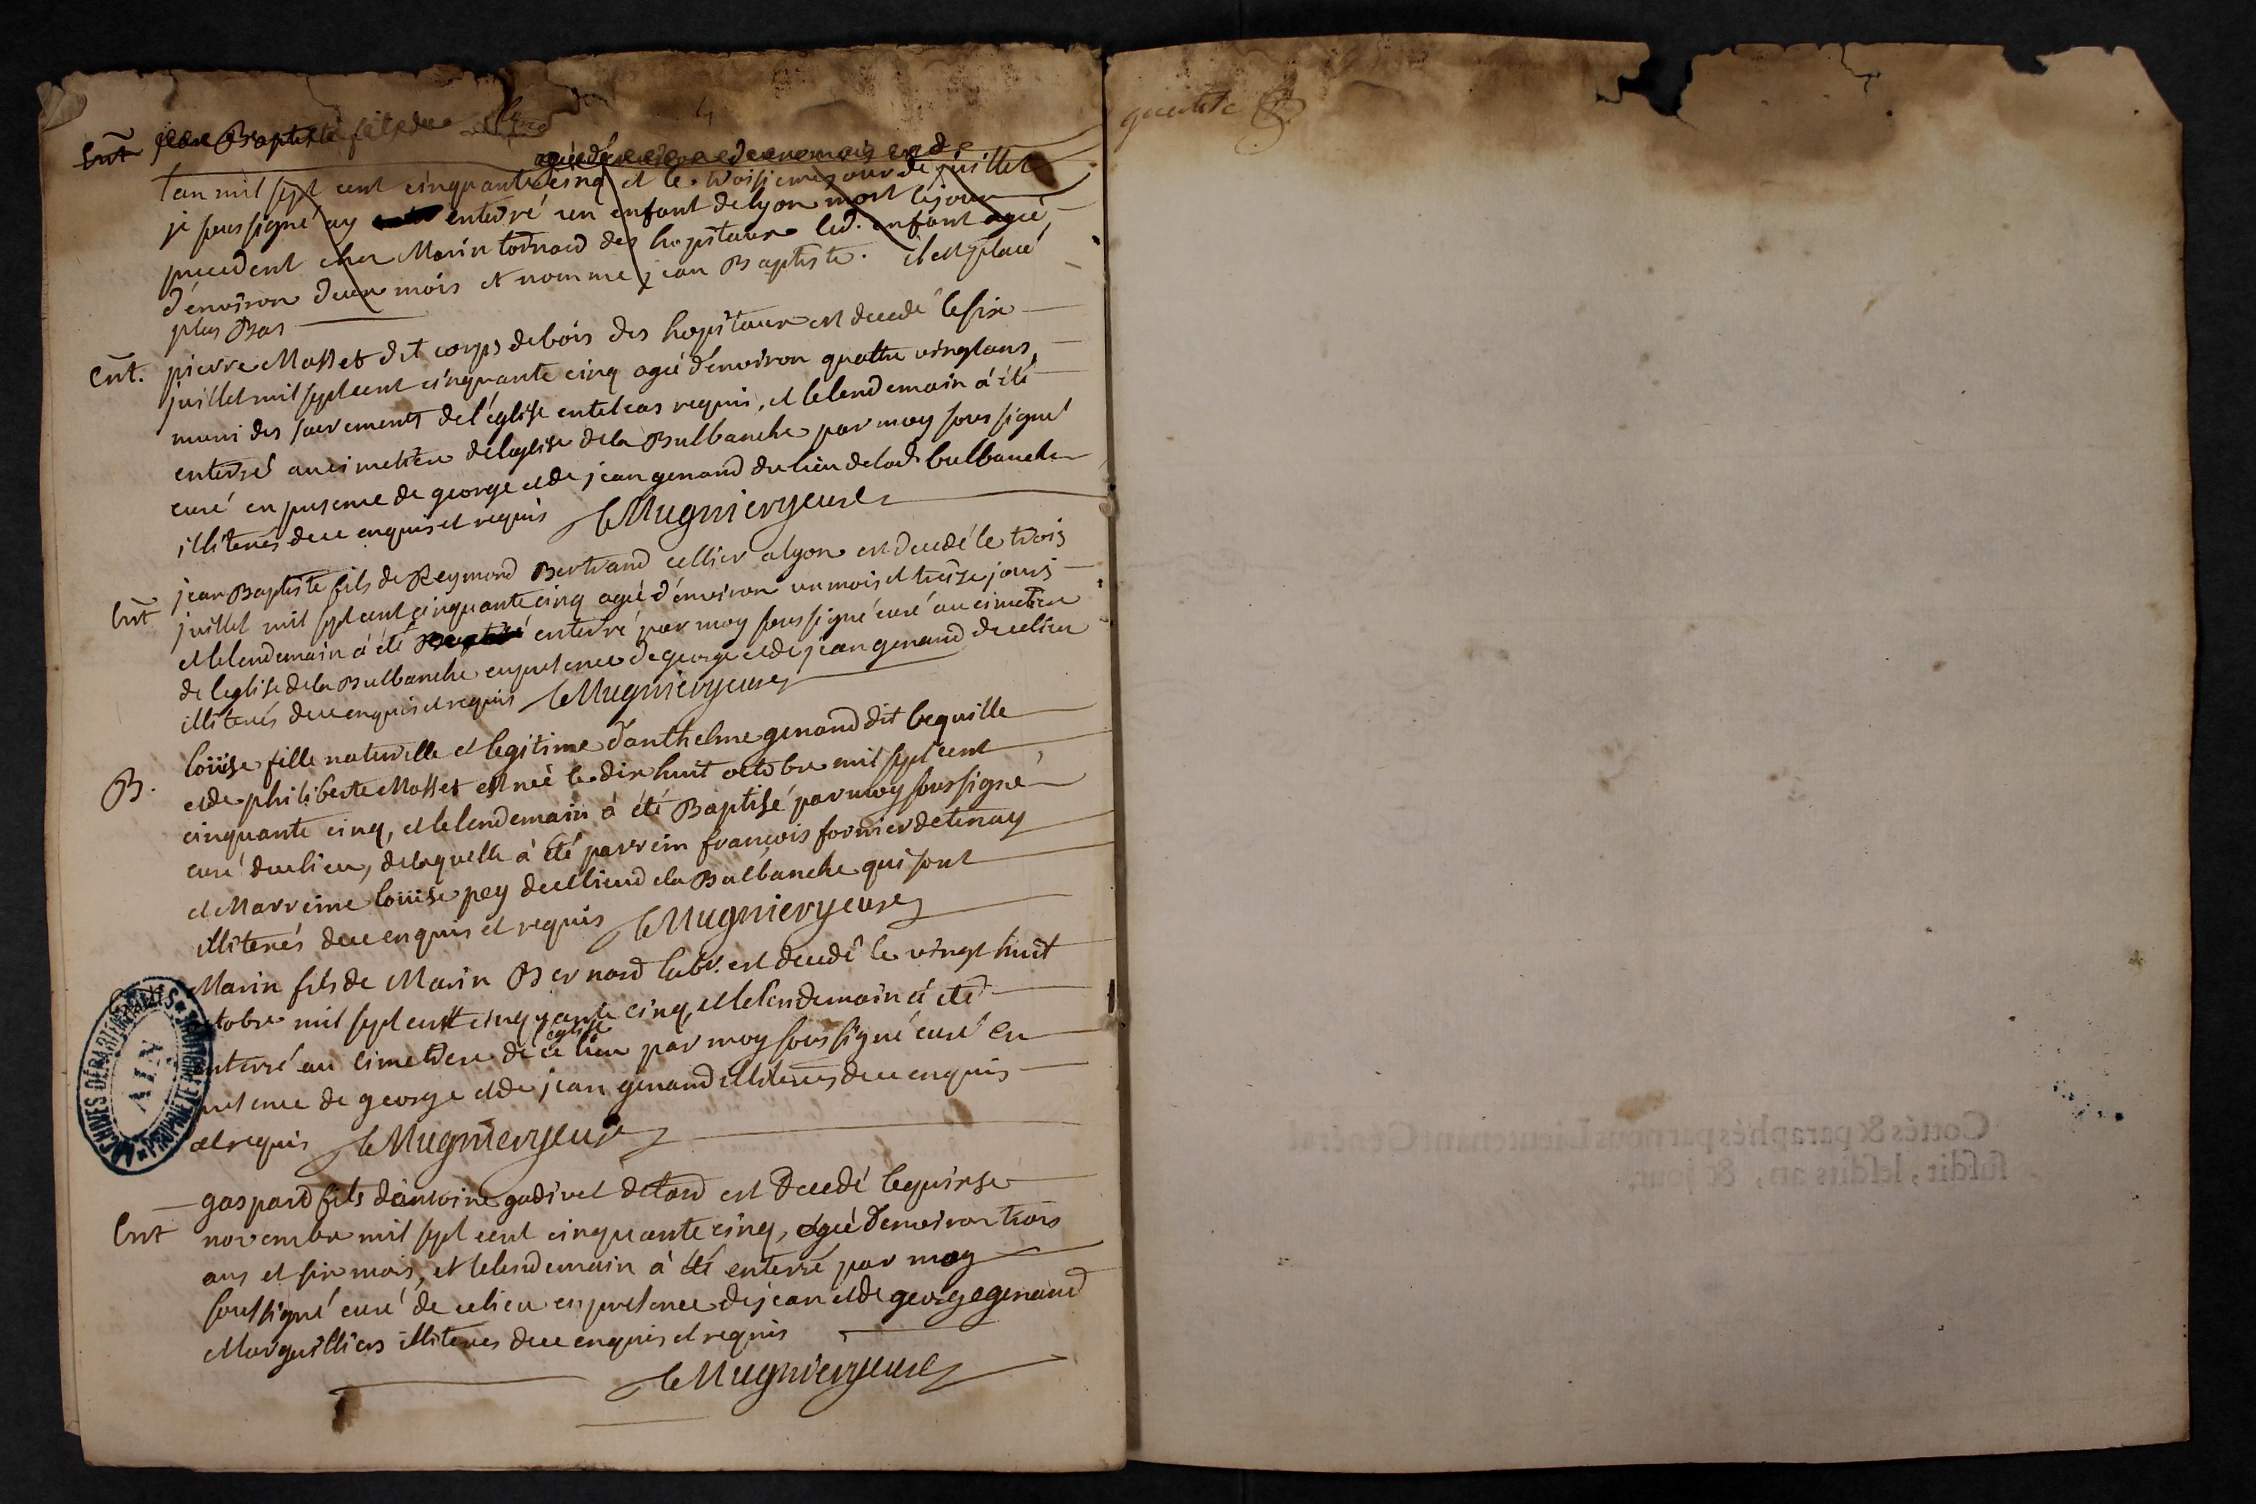 Ent jean Baptiste fils de
agé d'environ d'un mois et de
l'an mil sept cent cinquante cinq et le troisieme jour de juillet
je soussigné ay enterré un enfant de lyon mort le jour
precedent chez Marin tornard des hopitaux led. enfant agé
d'environ d'un mois et nommé jean Baptiste. il est placé
plus Bas
Ent. pierre Masset dit corps de bois des hopitaux est decedé le six
juillet mil sept cent cinquante cinq agé d'environ quattre vingt ans,
muni des sacrements de l'église en tel cas requis, et le lendemain à été
enterré au cimetiere de l'eglise de la Bulbanche par moy soussigné
curé en presence de george et de jean genand du lieu de lad. bulbanche
illiterés de ce enquis et requis
Ent jean Baptiste fils de Reymond Bertrand cellier a lyon est decedé le trois
juillet mil sept cent cinquante cinq agé d'environ un mois et treise jours
et le lendemain à été enterré par moy soussigné curé au cimetiere
de l'eglise de la Bulbanche en presence de george et de jean genand de ce lieu
illiterés de ce enquis et requis
B. loüise fille naturelle et legitime d'anthelme genand dit bequille
et de philiberte Masset est neé le dix huit octobre mil sept cent
cinquante cinq, et le lendemain à été Baptisé par moy soussigné
curé du lieu, de laquelle à été parrein françois fornier de tenay
et Marreine loüise pey de ce lieu de la Balbanche qui sont
illiterés de ce enquis et requis
Marin fils de Marin Bernard labr. est decedé le vingt huit
octobre mil sept cent cinquante cinq, et le lendemain à été
eglise
enterré au cimetiere de ce lieu par moy soussigné curé en
presence de george et de jean genand illiterés de ce enquis
et requis
gaspard fils d'antoine godivet est decedé le quinse
Ent novembre mil sept cent cinquante cinq, agé d'environ trois
ans et six mois, et le lendemain à été enterré par moy
soussigné curé de ce lieu en presence de jean et de george genand
Marguilliers illiterés de ce enquis et requis
ARCHIVES DÉPARTEMENTALES
AIN
PROPRIÉTÉ PUBLIQUE
Cottés & paraphés par nous Lieutenant Général
susdit, lesdits an, & jour.